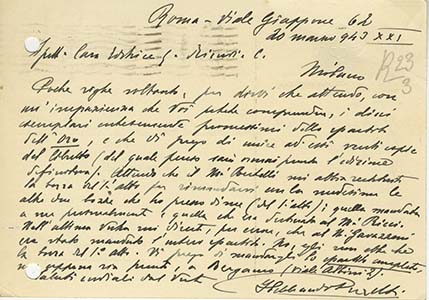 Roma - Viale Giappone 62
20 marzo 943 XXI
Spett. Casa Editrice G. Ricordi e C.
Milano
R 23/3
Poche righe soltanto, per dirvi che attendo, con
un'impazienza che Voi potete comprendere, i dieci
esemplari cortesemente promessimi dello spartito
dell'Oro, e che vi prego di unire ad essi venti copie
del libretto (del quale penso sarà ormai pronta l'edizione
definitiva). Attendo che il Mº mi abbia restituito
la bozza del 1º atto per rimandarvi una medesima le
altre due bozze che ho presso di me (del 1º atto): quella mandata
a me personalmente, quella che era destinata al Mº Ricci.
Nell'ultima Vostra mi dicete, per errore, che al Mº Gavazzeni
era stato mandato l'intero spartito. No, egli non ebbe che
la bozza del 1º atto. Vi prego di mandargli lo spartito completo,
appena sia pronto, a Bergamo
Saluti cordiali dal Vostro
Ildebrando Pizzetti